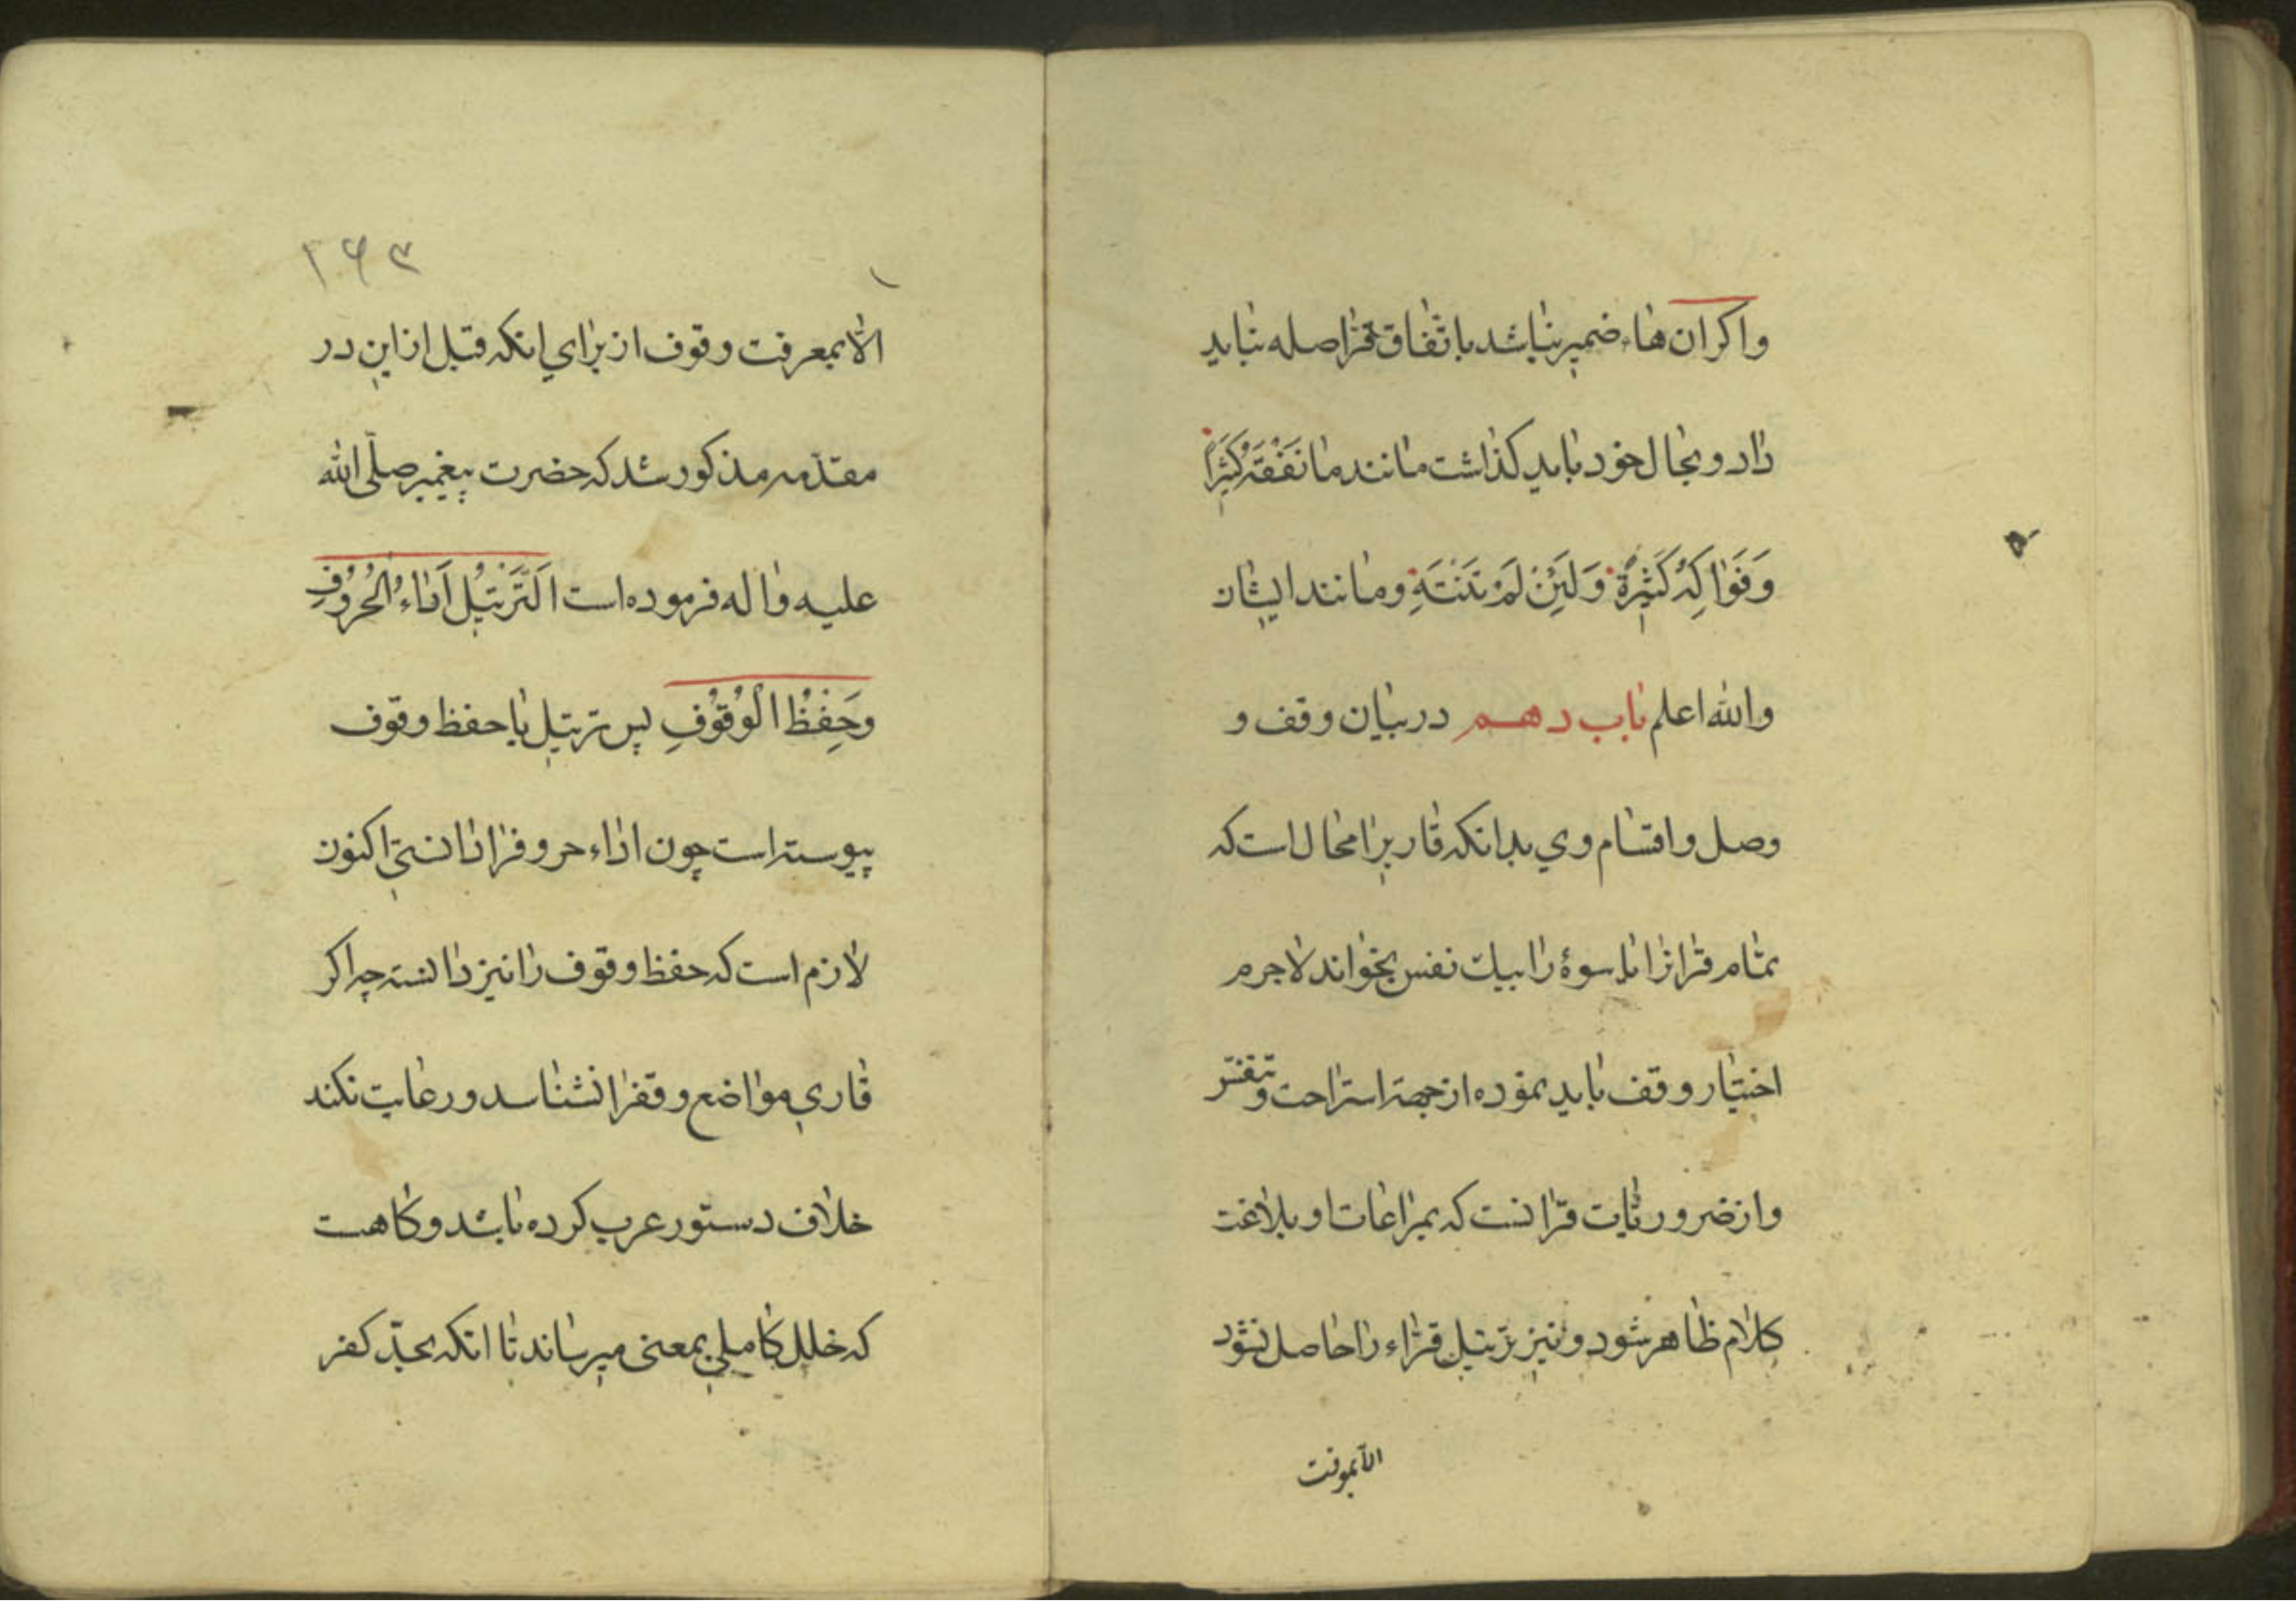 واکر ان هاء ضمیر نباشد باتفاق قرا صله نباید
داد و بحال خود باید کذاشت مانند ما نَفْقَهُ کَثِیرًا
وَفَوٰاکِهُ کَثِیرَةٌ وَلَئِنْ لَمْ تَنْتَهِ و مانند ایشان
والله اعلم باب دهم در بیان وقف و
وصل و اقسام وی بدانکه قاریرا محال است که
تمام قرانرا یا سوۀ را بیک نفس بخواند لاجرم
اختیار وقف باید نموده از جهة استراحت و تنفّس
و از ضروریات قرّانست که بمراعات او بلاغت
کلام ظاهر شود و نیز ترتیل قراء را حاصل نشود
الّا بمعرفت
۱۶۳
الّا بمعرفت وقوف از برای انکه قبل از این در
مقدّمه مذکور شد که حضرت پیغمبر صلّی الله
علیه و اله فرموده است اَلتَّرْتِیْلُ اَدٰاءُ الْحُرُوْفِ
وَحِفْظُ الْوُقُوْفِ پس ترتیل با حفظ وقوف
پیوسته است چون اداء حروفرا دانستی اکنون
لازم است که حفظ وقوف را نیز دانسته چه اکر
قاری مواضع وقفرا نشناسد و رعایت نکند
خلاف دستور عرب کرده باشد و کاهست
که خلل کاملی بمعنی میرساند تا انکه بحدّ کفر